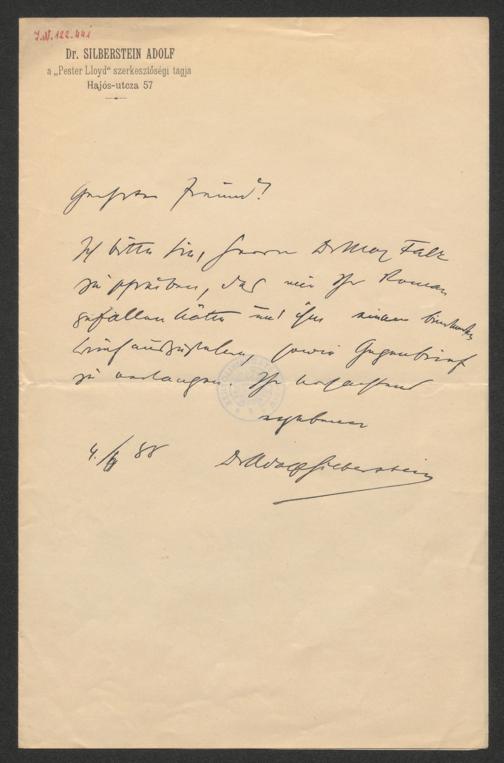 I.N. 122.441
Dr. SILBERSTEIN ADOLF
a „Pester Lloyd“ szerkesztőségi tagja
Hajós-utcza 57
Geehrter Freund!
Ich bitte Sie, Herrn Dr Max Falk
zu schreiben, daß mir Ihr Roman
gefallen hätte und ihm einen
brief auszustellen, sowie Gegenbrief
zu verlangen. Ihr hochachtend
ergebener
4./ 88 Dr Adolf Silberstein